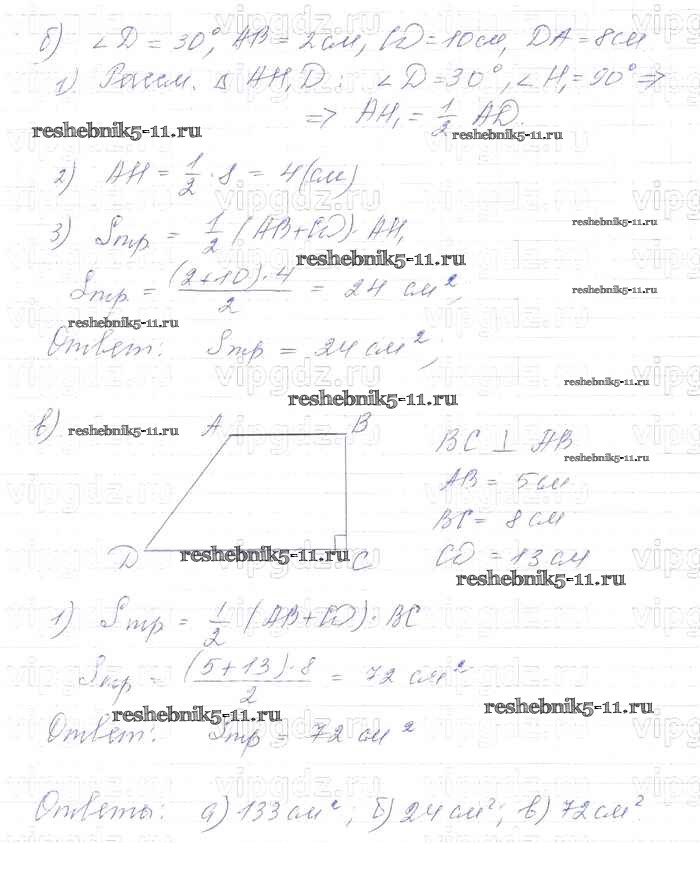 б) ∠D = 30°, AB = 2см, CD = 10см, DA = 8см
1) Рассм. Δ AH₁D: ∠D = 30°, ∠H₁ = 90° =>
=> AH₁ = 1/2 AD.
reshebnik5-11.ru
reshebnik5-11.ru
2) AH = 1/2 · 8 = 4 (см)
3) Sтр = 1/2 (AB+CD) · AH₁
reshebnik5-11.ru
reshebnik5-11.ru
Sтр = (2+10)·4 / 2 = 24 см²,
reshebnik5-11.ru
reshebnik5-11.ru
Ответ: Sтр = 24 см²;
reshebnik5-11.ru
reshebnik5-11.ru
в) reshebnik5-11.ru
A B
D C
reshebnik5-11.ru
BC ⊥ AB
reshebnik5-11.ru
AB = 5см
BC = 8см
CD = 13см
reshebnik5-11.ru
1) Sтр = 1/2 (AB+CD) · BC
Sтр = (5+13)·8 / 2 = 72 см²
reshebnik5-11.ru
reshebnik5-11.ru
Ответ: Sтр = 72 см²
Ответы: а) 133 см²; б) 24 см²; в) 72 см².
vipgdz.ru